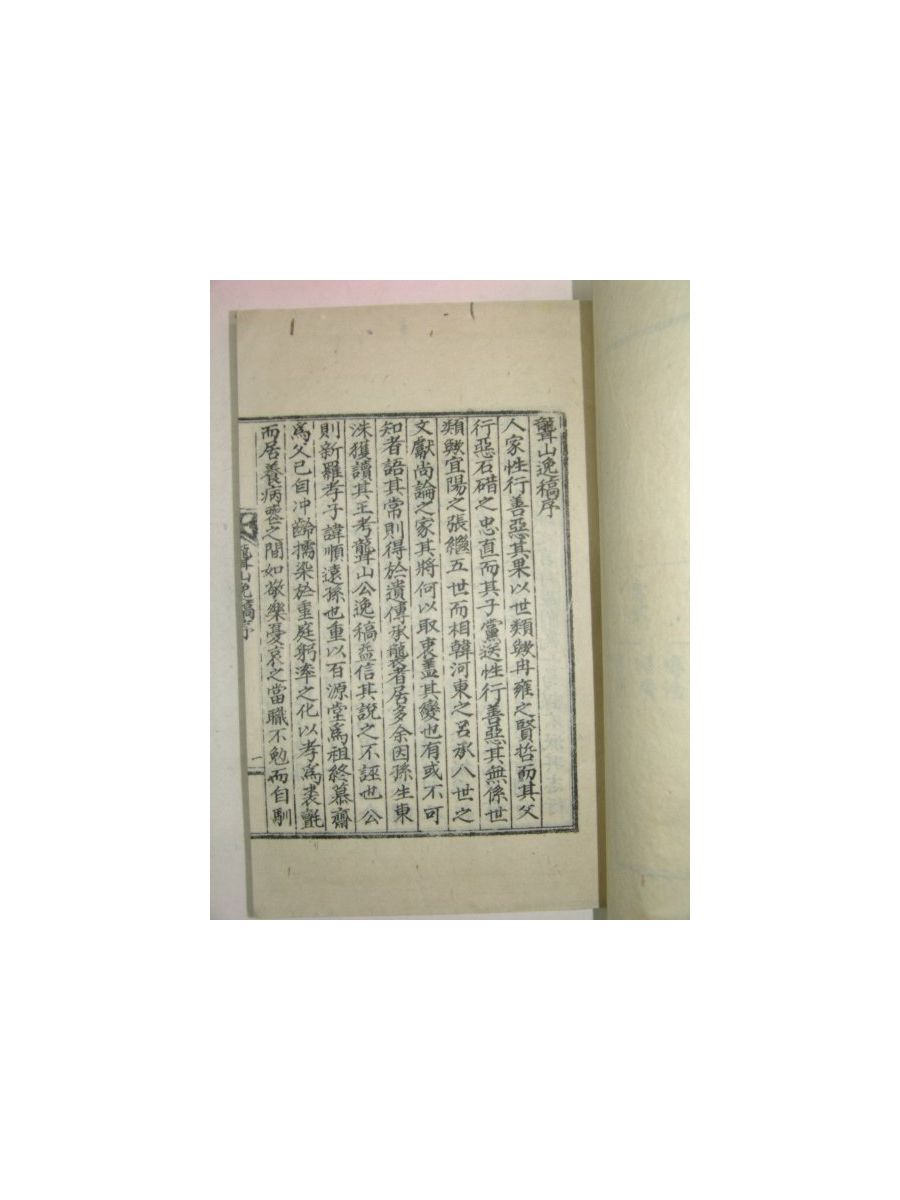 聾山逸稿序
人家性行善惡其果以世類歟冉雍之賢哲而其父
行惡石碏之忠直而其子黨送性行善惡其無係世
類歟宜陽之張繼五世而相韓河東之呂承八世之
文獻尚論之家其將何以取衷盖其變也有或不可
知者語其常則得於遺傳承襲者居多余因孫生東
洙獲讀其王考聾山公逸稿益信其說之不誣也公
則新羅孝子諱順遠孫也重以百源堂爲祖終慕齋
爲父已自冲齡擩染於重庭躬率之化以孝爲裘氈
而居養病喪之間如敬樂憂哀之當職不勉而自馴
聾山逸稿序
一